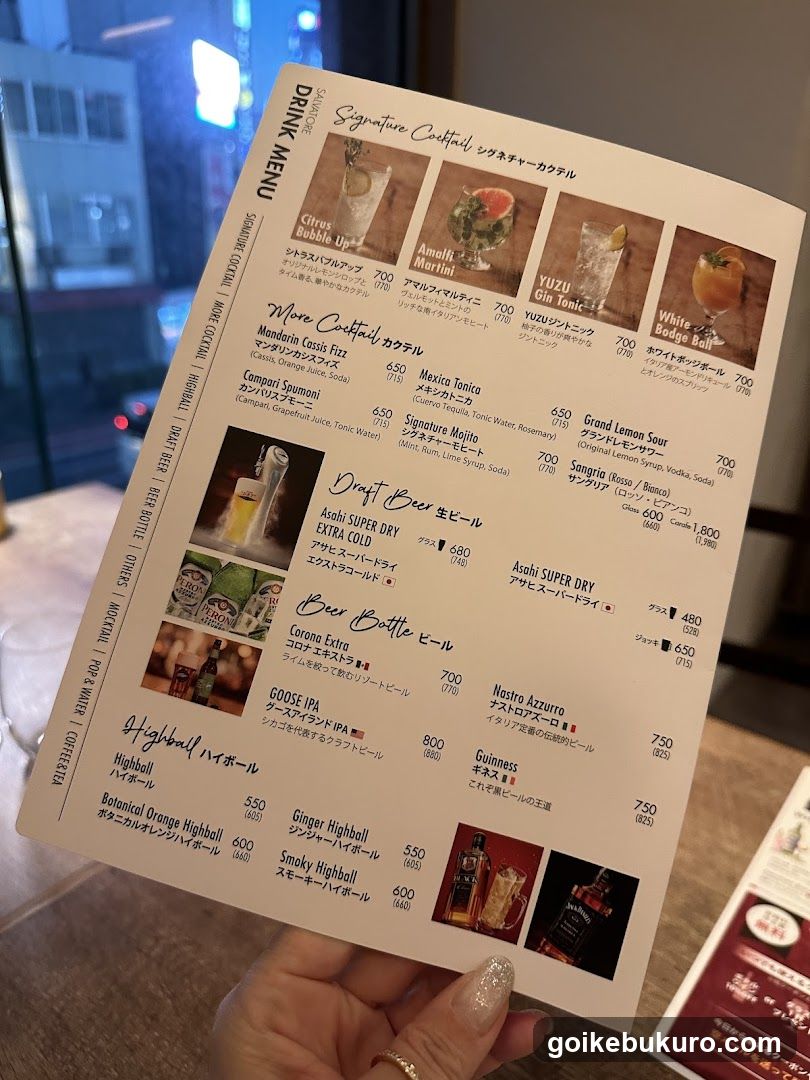 SALVATORE
DRINK MENU
SIGNATURE COCKTAIL | MORE COCKTAIL | HIGHBALL | DRAFT BEER | BEER BOTTLE | OTHERS | MOCKTAIL | POP & WATER | COFFEE&TEA
Signature Cocktail シグネチャーカクテル
Citrus
Bubble Up
シトラスバブルアップ
オリジナルレモンシロップと
タイム香る、華やかなカクテル
700
(770)
Amalfi
Martini
アマルフィマルティニ
ヴェルモットとミントの
リッチな南イタリアンモヒート
700
(770)
YUZU
Gin Tonic
YUZUジントニック
柚子の香りが爽やかな
ジントニック
700
(770)
White
Bodge Ball
ホワイトボッジボール
イタリア産アーモンドリキュール
とオレンジのスプリッツ
700
(770)
More Cocktail カクテル
Mandarin Cassis Fizz
マンダリンカシスフィズ
(Cassis, Orange Juice, Soda)
650
(715)
Mexica Tonica
メキシカトニカ
(Cuervo Tequila, Tonic Water, Rosemary)
650
(715)
Grand Lemon Sour
グランドレモンサワー
(Original Lemon Syrup, Vodka, Soda)
700
(770)
Campari Spumoni
カンパリスプモーニ
(Campari, Grapefruit Juice, Tonic Water)
650
(715)
Signature Mojito
シグネチャーモヒート
(Mint, Rum, Lime Syrup, Soda)
700
(770)
Sangria (Rosso / Bianco)
サングリア（ロッソ・ビアンコ）
Glass 600
(660)
Carafe 1,800
(1,980)
Draft Beer 生ビール
Asahi SUPER DRY
EXTRA COLD
アサヒ スーパードライ
エクストラコールド
グラス 680
(748)
Asahi SUPER DRY
アサヒ スーパードライ
グラス 480
(528)
ジョッキ 650
(715)
PERONI
Beer Bottle ビール
Corona Extra
コロナ エキストラ
ライムを絞って飲むリゾートビール
700
(770)
Nastro Azzurro
ナストロアズーロ
イタリア定番の伝統的ビール
750
(825)
GOOSE IPA
グースアイランド IPA
シカゴを代表するクラフトビール
800
(880)
Guinness
ギネス
これぞ黒ビールの王道
750
(825)
Highball ハイボール
Highball
ハイボール
550
(605)
Ginger Highball
ジンジャーハイボール
550
(605)
Botanical Orange Highball
ボタニカルオレンジハイボール
600
(660)
Smoky Highball
スモーキーハイボール
600
(660)
BLACK
無料
or
goikebukuro.com